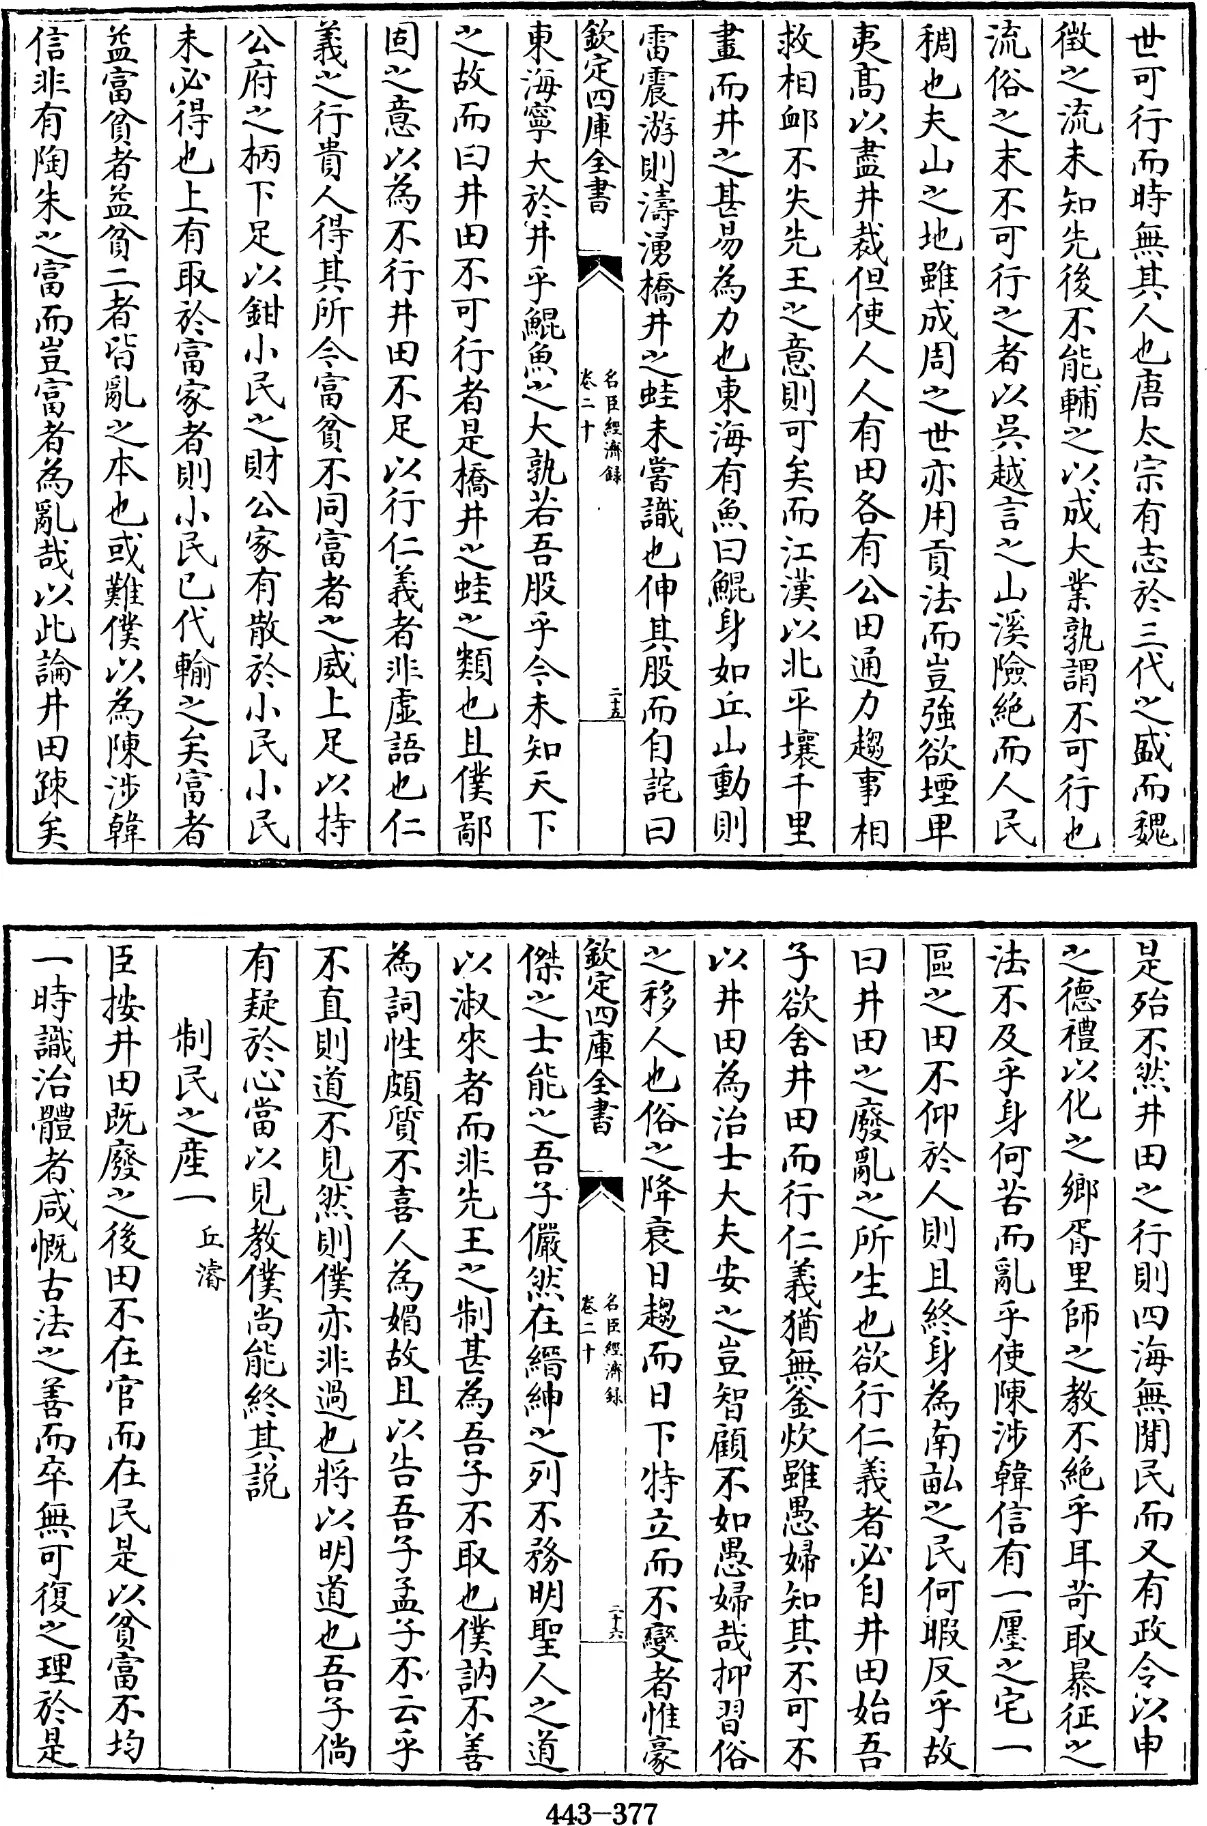 世可行而時無其人也唐太宗有志於三代之盛而魏
徵之流未知先後不能輔之以成大業孰謂不可行也
流俗之末不可行之者以吳越言之山溪險絶而人民
稠也夫山之地雖成周之世亦用貢法而豈強欲堙卑
夷髙以盡井哉但使人人有田各有公田通力趨事相
救相䘏不失先王之意則可矣而江漢以北平壤千里
畫而井之甚易為力也東海有魚曰鯤身如丘山動則
雷震游則濤湧橋井之蛙未嘗識也伸其股而自詫曰
欽定四庫全書
名臣經濟録
卷二十
二十五
東海寧大於井乎鯤魚之大孰若吾股乎今未知天下
之故而曰井田不可行者是橋井之蛙之類也且僕鄙
固之意以為不行井田不足以行仁義者非虛語也仁
義之行貴人得其所今富貧不同富者之威上足以持
公府之柄下足以鉗小民之財公家有散於小民小民
未必得也上有取於富家者則小民已代輸之矣富者
益富貧者益貧二者皆亂之本也或難僕以為陳涉韓
信非有陶朱之富而豈富者為亂哉以此論井田疎矣
是殆不然井田之行則四海無閒民而又有政令以申
之德禮以化之鄉胥里師之教不絶乎耳苛取暴征之
法不及乎身何苦而亂乎使陳涉韓信有一廛之宅一
區之田不仰於人則且終身為南畝之民何暇反乎故
曰井田之廢亂之所生也欲行仁義者必自井田始吾
子欲舍井田而行仁義猶無釜炊雖愚婦知其不可不
以井田為治士大夫安之豈智顧不如愚婦哉抑習俗
之移人也俗之降衰日趨而日下特立而不變者惟豪
欽定四庫全書
名臣經濟録
卷二十
二十六
傑之士能之吾子儼然在縉紳之列不務明聖人之道
以淑來者而非先王之制甚為吾子不取也僕訥不善
為詞性頗質不喜人為媚故且以告吾子孟子不云乎
不直則道不見然則僕亦非過也將以明道也吾子倘
有疑於心當以見教僕尚能終其説
制民之産一 丘濬
臣按井田既廢之後田不在官而在民是以貧富不均
一時識治體者咸慨古法之善而卒無可復之理於是
443-377